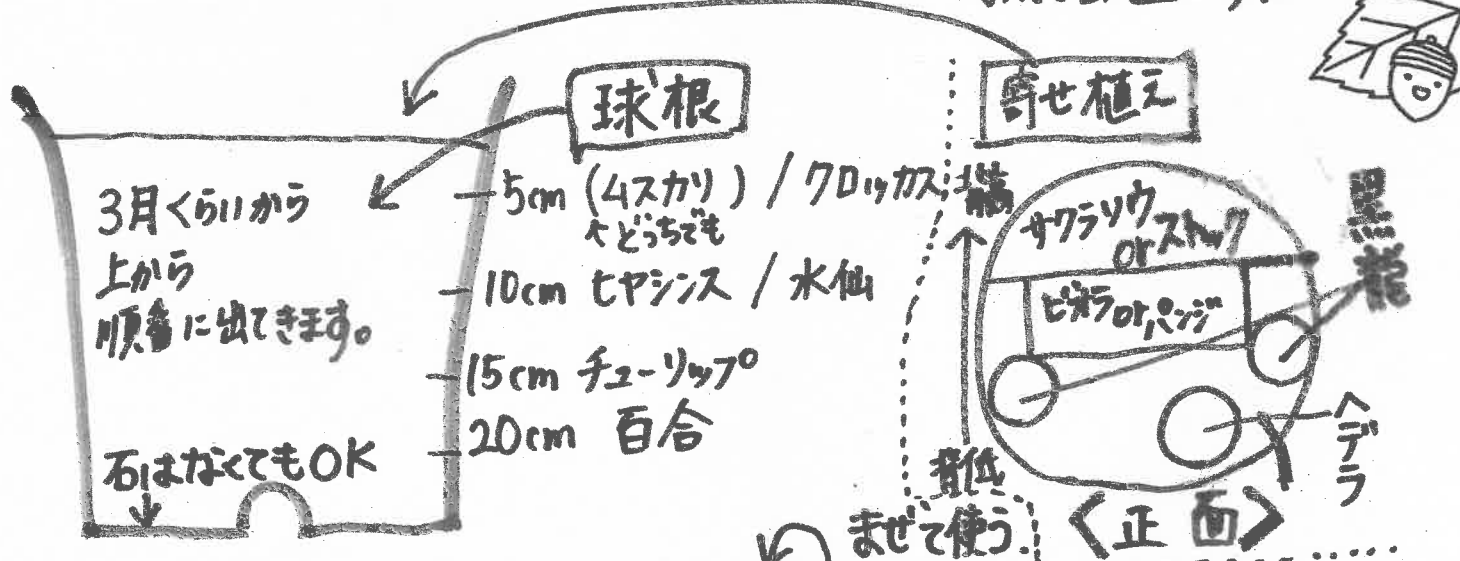 球根
3月くらいから
上から
順番に出てきます。
石はなくてもOK
5cm (ムスカリ) / クロッカス
↑どっちでも
10cm ヒヤシンス / 水仙
15cm チューリップ
20cm 百合
寄せ植え
背高
背低
サクラソウ
orストック
ビオラorパンジ
黒龍
ヘデラ
<正面>
まぜて使う